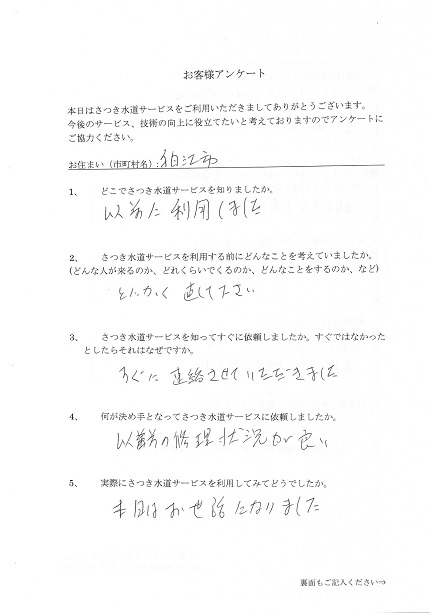 お客様アンケート
本日はさつき水道サービスをご利用いただきましてありがとうございます。
今後のサービス、技術の向上に役立てたいと考えておりますのでアンケートに
ご協力ください。
お住まい（市町村名）：狛江市
1、 どこでさつき水道サービスを知りましたか。
以前に利用しました
2、 さつき水道サービスを利用する前にどんなことを考えていましたか。
（どんな人が来るのか、どれくらいでくるのか、どんなことをするのか、など）
とにかく直して下さい
3、 さつき水道サービスを知ってすぐに依頼しましたか。すぐではなかった
としたらそれはなぜですか。
すぐに連絡させていただきました
4、 何が決め手となってさつき水道サービスに依頼しましたか。
以前の修理状況が良い
5、 実際にさつき水道サービスを利用してみてどうでしたか。
本日はお世話になりました
裏面もご記入ください⇒